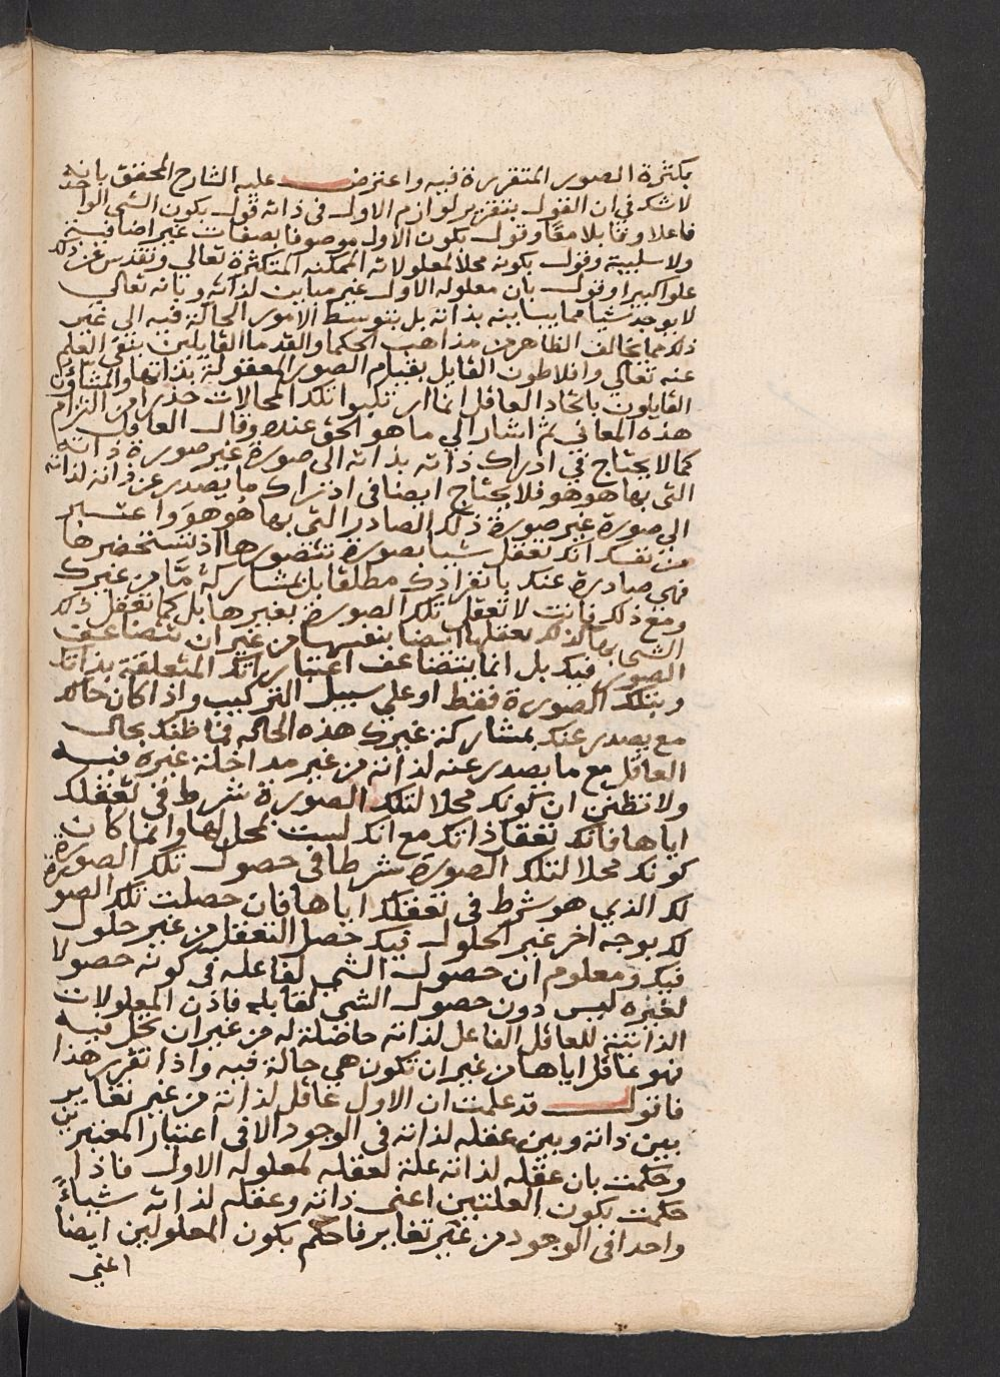 بكثرة الصور المتقررة فيه واعترض عليه الشارح المحقق بانه
لا شك في ان القول بتقرير لوازم الاول في ذاته قول بكون الشي الواحد
فاعلا وقابلا معًا وقول بكون الاول موصوفا بصفات غير اضافية
ولا سلبية وقول بكونه محلا لمعلولاته الممكنه المتكثرة تعالي وتقدس عن ذلك
علوا كبيرا وقول بان معلوله الاول غير مباين لذاته وبانه تعالي
لا يوجد شيا مما يباينه بذاته بل بتوسط الامور الحالة فيه الي غير
ذلك مما يخالف الظاهر من مذاهب الحكما والقدما القايلين بنفي العلم
عنه تعالي وافلاطون القايل بقيام الصور المعقولة بذاتها والمشاؤن
القايلون باتحاد العاقل انما ارتكبوا تلك المحالات حذرا من التزام
هذه المعاني ثم اشار الي ما هو الحق عنده وقال العاقل
كما لا يحتاج في ادراك ذاته بذاته الى صورة غير صورة ذاته
التى بها هو هو فلا يحتاج ايضا فى ادراك ما يصدر عن ذاته لذاته
الى صورة غير صورة ذلك الصادر التى بها هو هو واعتبر
من نفسك انك تعقل شيا بصورة تتصورها اذ تستحضرها
فهى صادرة عنك بانفرادك مطلقا بل بمشاركة مّا من غيرك
ومع ذلك فانت لا تعقل تلك الصورة بغيرها بل كما تعقل ذلك
الشى بها كذلك تعقلها ايضا بنفسها من غير ان تتضاعف
الصور فيك بل انما يتضاعف اعتباراتك المتعلقة بذاتك
وبتلك الصورة فقط او على سبيل التركيب واذا كان حالك
مع يصدر عنك بمشاركة غيرك هذه الحاله فما ظنك بحال
العاقل مع ما يصدر عنه لذاته من غير مداخلة غيره فيه
ولا تظنن ان كونك محلا لتلك الصورة شرط في تعقلك
اياها فانك تعقل ذاتك مع انك لست بمحل لها وانما كان
كونك محلا لتلك الصورة شرطا فى حصول تلك الصورة
لك الذي هو شرط فى تعقلك اياها فان حصلت تلك الصورة
لك بوجه اخر غير الحلول فيك حصل التعقل من غير حلول
فيك ومعلوم ان حصول الشي لفاعله في كونه حصولا
لغيره ليس دون حصول الشي لقابله فاذن المعلولات
الذاتية للعاقل الفاعل لذاته حاضلة له من غير ان تحل فيه
فهو عاقل اياها من غير ان تكون هي حالة فيه واذا تقرر هذا
فاقول قد علمت ان الاول عاقل لذاته من غير تغاير
بين ذاته وبين عقله لذاته فى الوجود الا فى اعتبار المعتبرين
وحكمت بان عقله لذاته علة لعقله لمعلوله الاول فاذا
حكمت بكون العلتين اعنى ذاته وعقله لذاته شياءً
واحدا فى الوجود من غير تغاير فاحكم بكون المعلولين ايضا
اعني